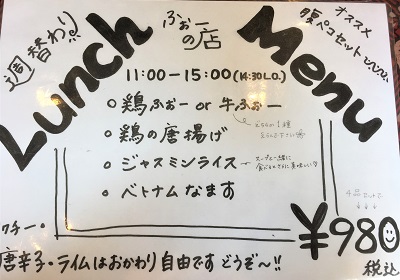 週替わり
Lunch
ふぉー
の店
Menu
オススメ
腹ペコセット
11:00-15:00(14:30L.O.)
鶏ふぉー or 牛ふぉー
鶏の唐揚げ
ジャスミンライス
スープと一緒に
食べるとさらに美味しい!!
ベトナムなます
¥980
税込
クチー・
唐辛子・ライムはおかわり自由です どうぞ〜!!